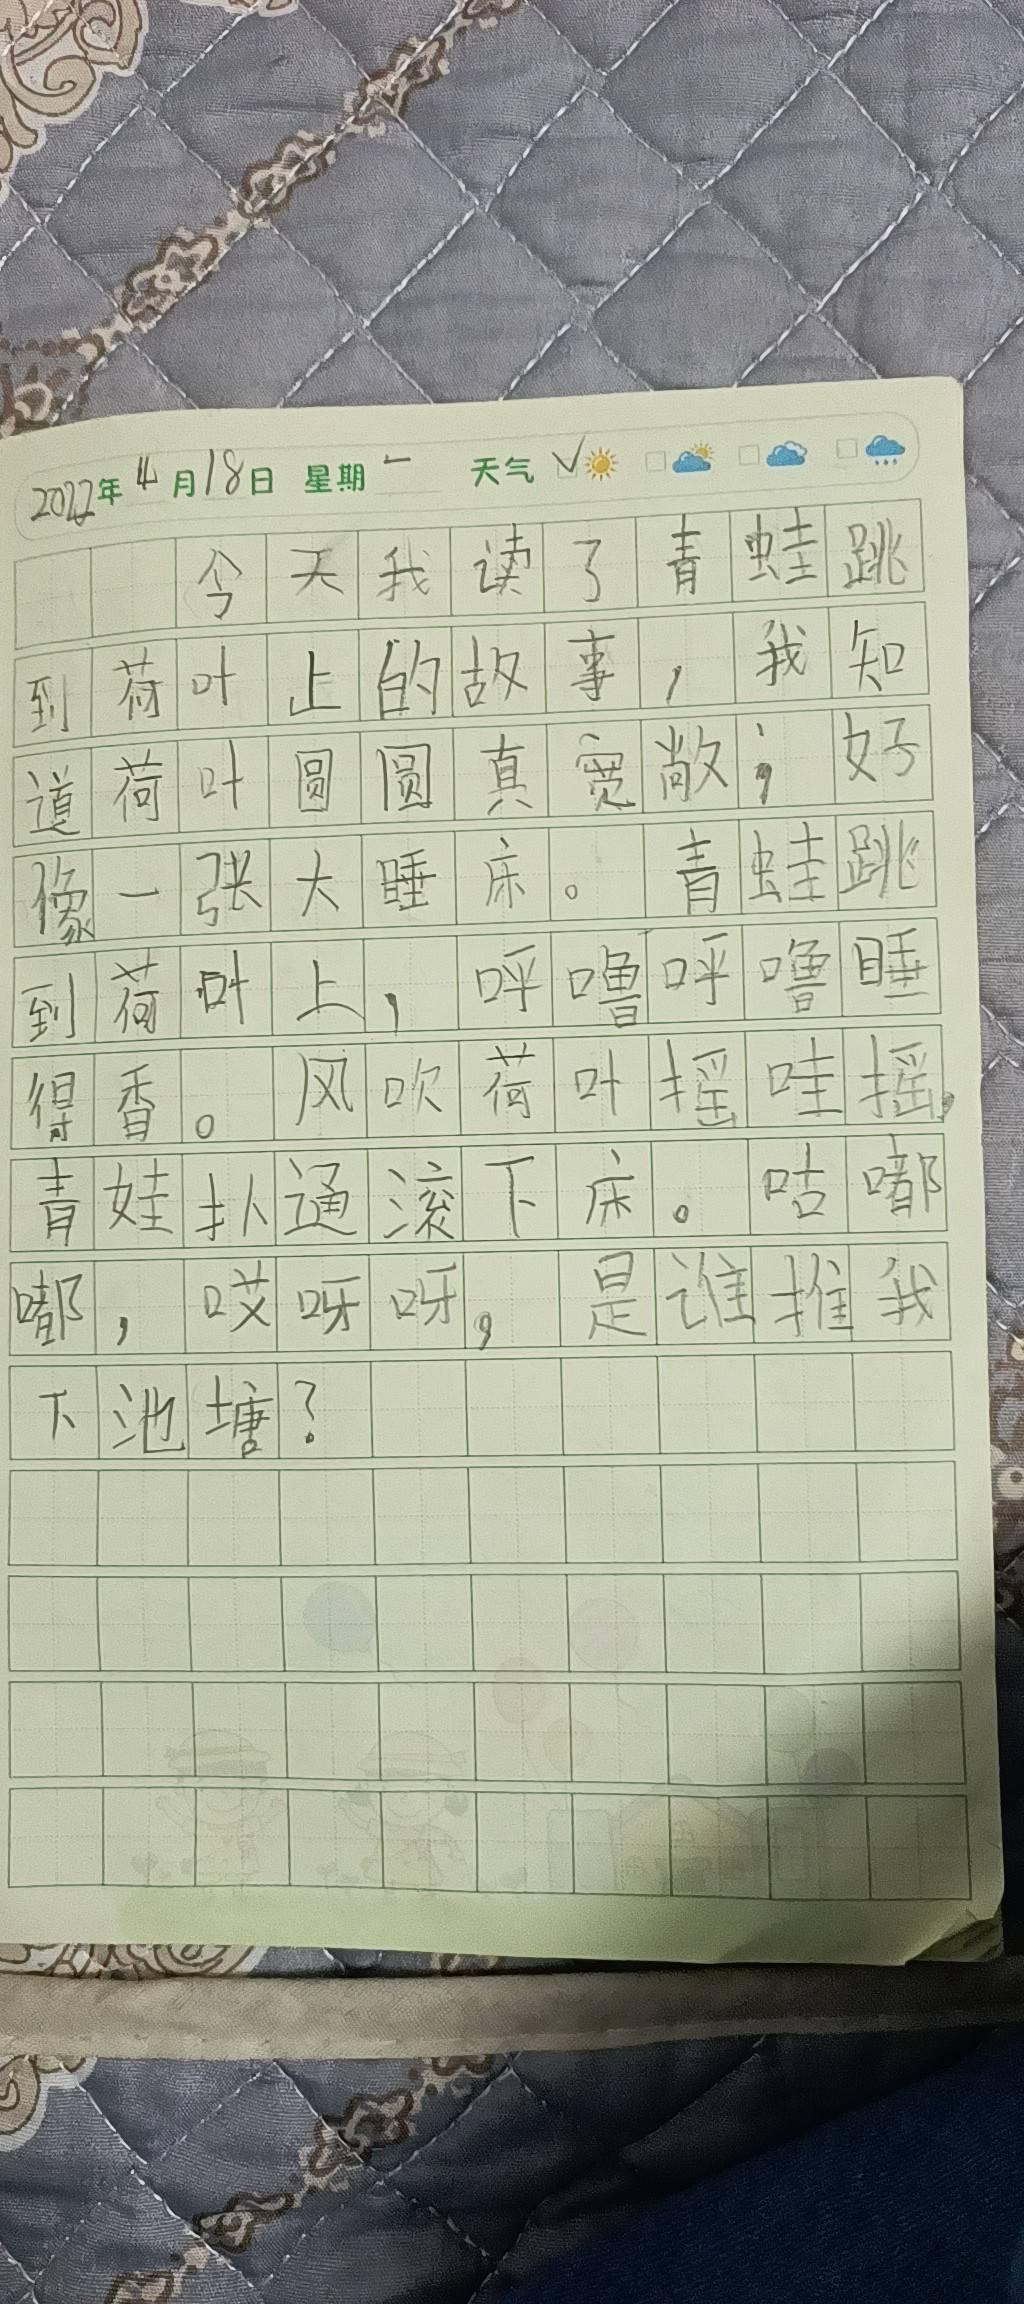 2022年4月18日 星期一 天气 ✓
今天我读了青蛙跳
到荷叶上的故事，我知
道荷叶圆圆真宽敞；好
像一张大睡床。青蛙跳
到荷叶上，呼噜呼噜睡
得香。风吹荷叶摇哇摇，
青娃扑通滚下床。咕嘟
嘟，哎呀呀，是谁推我
下池塘？